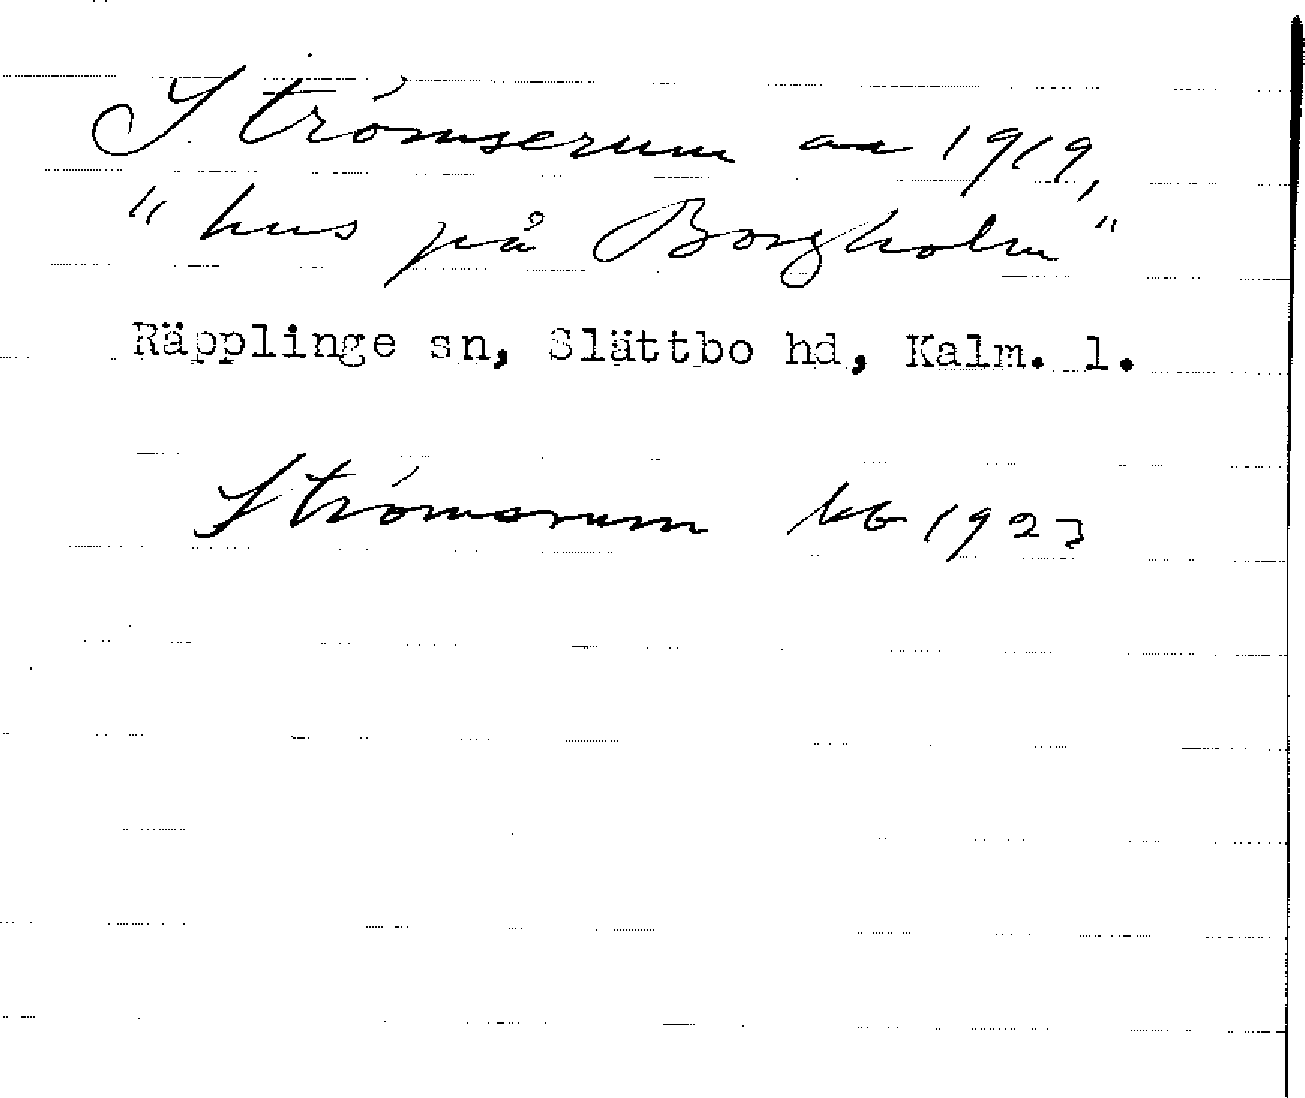 Strömserum aa 1919,
"hus på Borgholm"
Räpplinge sn, Slättbo hd, Kalm. l.
Strömsrum kb 1923